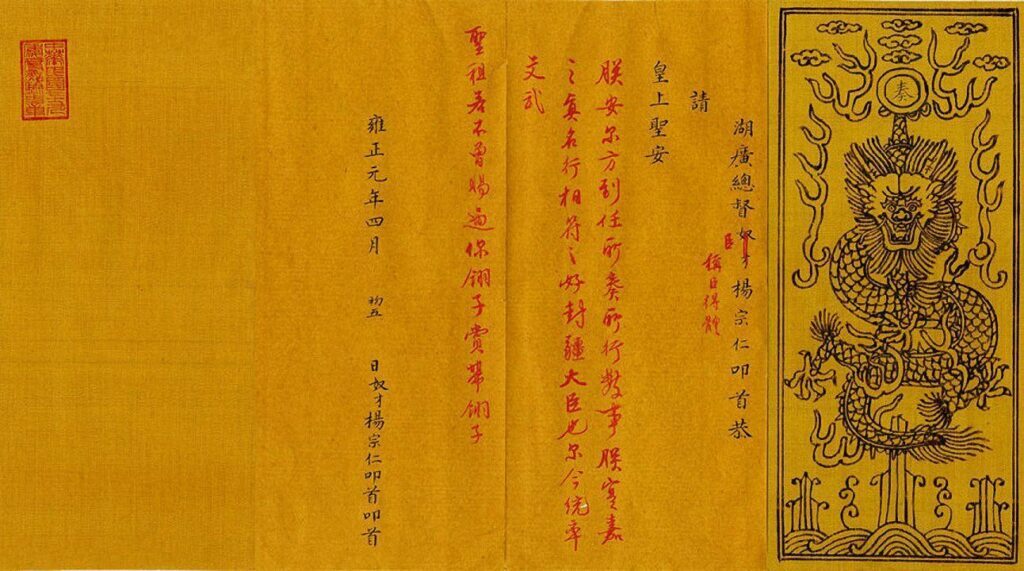 奏
湖廣總督奴才楊宗仁叩首恭
臣
稱臣得體
請
皇上聖安
朕安尔方到任所奏所行數事朕寔嘉
之真名行相符之好封疆大臣也尔今統率
文武
聖祖若不曾賜過你翎子賞帶翎子
雍正元年四月 初五 日奴才楊宗仁叩首叩首